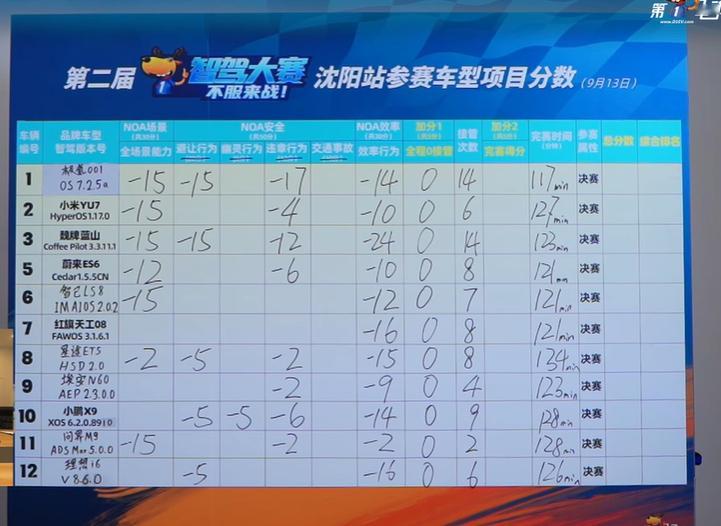 第1
www.DSTV.com
第二届 智驾大赛 不服来战! 沈阳站参赛车型项目分数 (9月13日)
车辆编号 品牌车型 智驾版本号 NOA场景 (共30分) 全场景能力 NOA安全 (共50分) 避让行为 幽灵行为 违章行为 交通事故 NOA效率 (共20分) 效率行为 加分1 全程0接管 接管次数 加分2 完赛得分 完赛时间 (分钟) 参赛属性 总分数 综合排名
1 极氪001 OS 7.2.5a -15 -15 -17 -14 0 14 117min 决赛
2 小米YU7 HyperOS1.17.0 -15 -4 -10 0 6 127min 决赛
3 魏牌蓝山 Coffee Pilot 3.3.11.1 -15 -15 -12 -24 0 14 123min 决赛
5 蔚来ES6 Cedar1.5.5CN -12 -6 -10 0 8 121min 决赛
6 智己LS8 IMAIOS 2.0.2 -15 -12 0 7 121min 决赛
7 红旗天工08 FAWOS 3.1.6.1 -16 0 8 121min 决赛
8 星途ET5 HSD 2.0 -2 -5 -2 -15 0 8 134min 决赛
9 埃安N60 AEP 2.3.0.0 -2 -9 0 4 123min 决赛
10 小鹏X9 XOS 6.2.0.8910 -5 -5 -6 -14 0 9 128min 决赛
11 问界M9 ADS Max 5.0.0 -15 -2 -2 0 2 128min 决赛
12 理想i6 V 8.6.0 -5 -16 0 6 126min 决赛